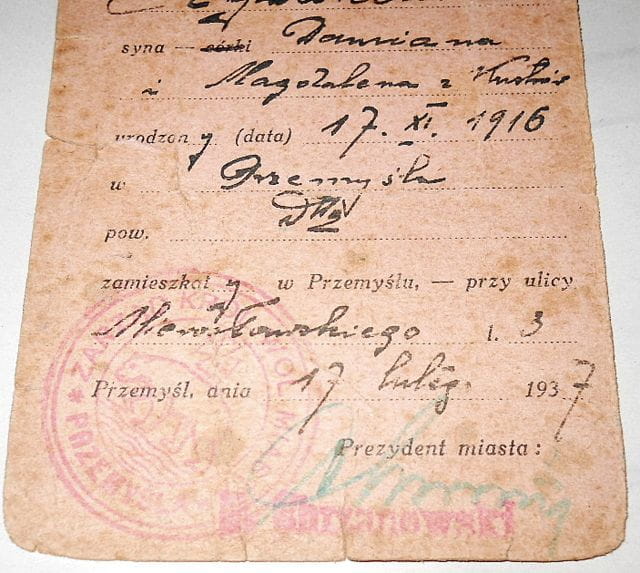 syna — córki Damiana
i Magdalena z
urodzony (data) 17. XI. 1916
w Przemyślu
pow.
zamieszkały w Przemyślu, — przy ulicy
Mierosławskiego l. 3
Przemyśl, dnia 17 luteg. 1937
Prezydent miasta:
PRZEMYŚL
Chrzanowski